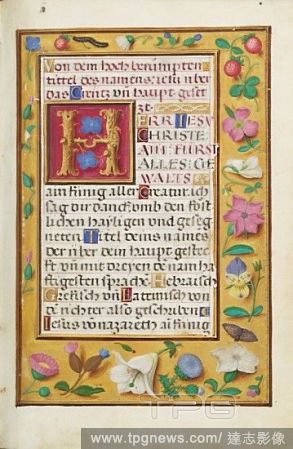 Von dem hoch berümpten
tittel des namens iesu uber
das Creutz uñ haupt gesetzt.
HERR IESV
CHRISTE
AIN FURST
ALLES GE
WALTS
ain künig aller Creatur ich
sag dir danck umb den köst
lichen hayligen und geseg
neten Tittel deins names
der uber dem haupt gesteckt
uñ mit dreyen den namhaf
ftigesten sprachē Hebraisch
Griechisch uñ Latinisch von
de nechter also geschriben
Iesus von azareth ain künig
TPG
www.tpgnews.com / 達志影像